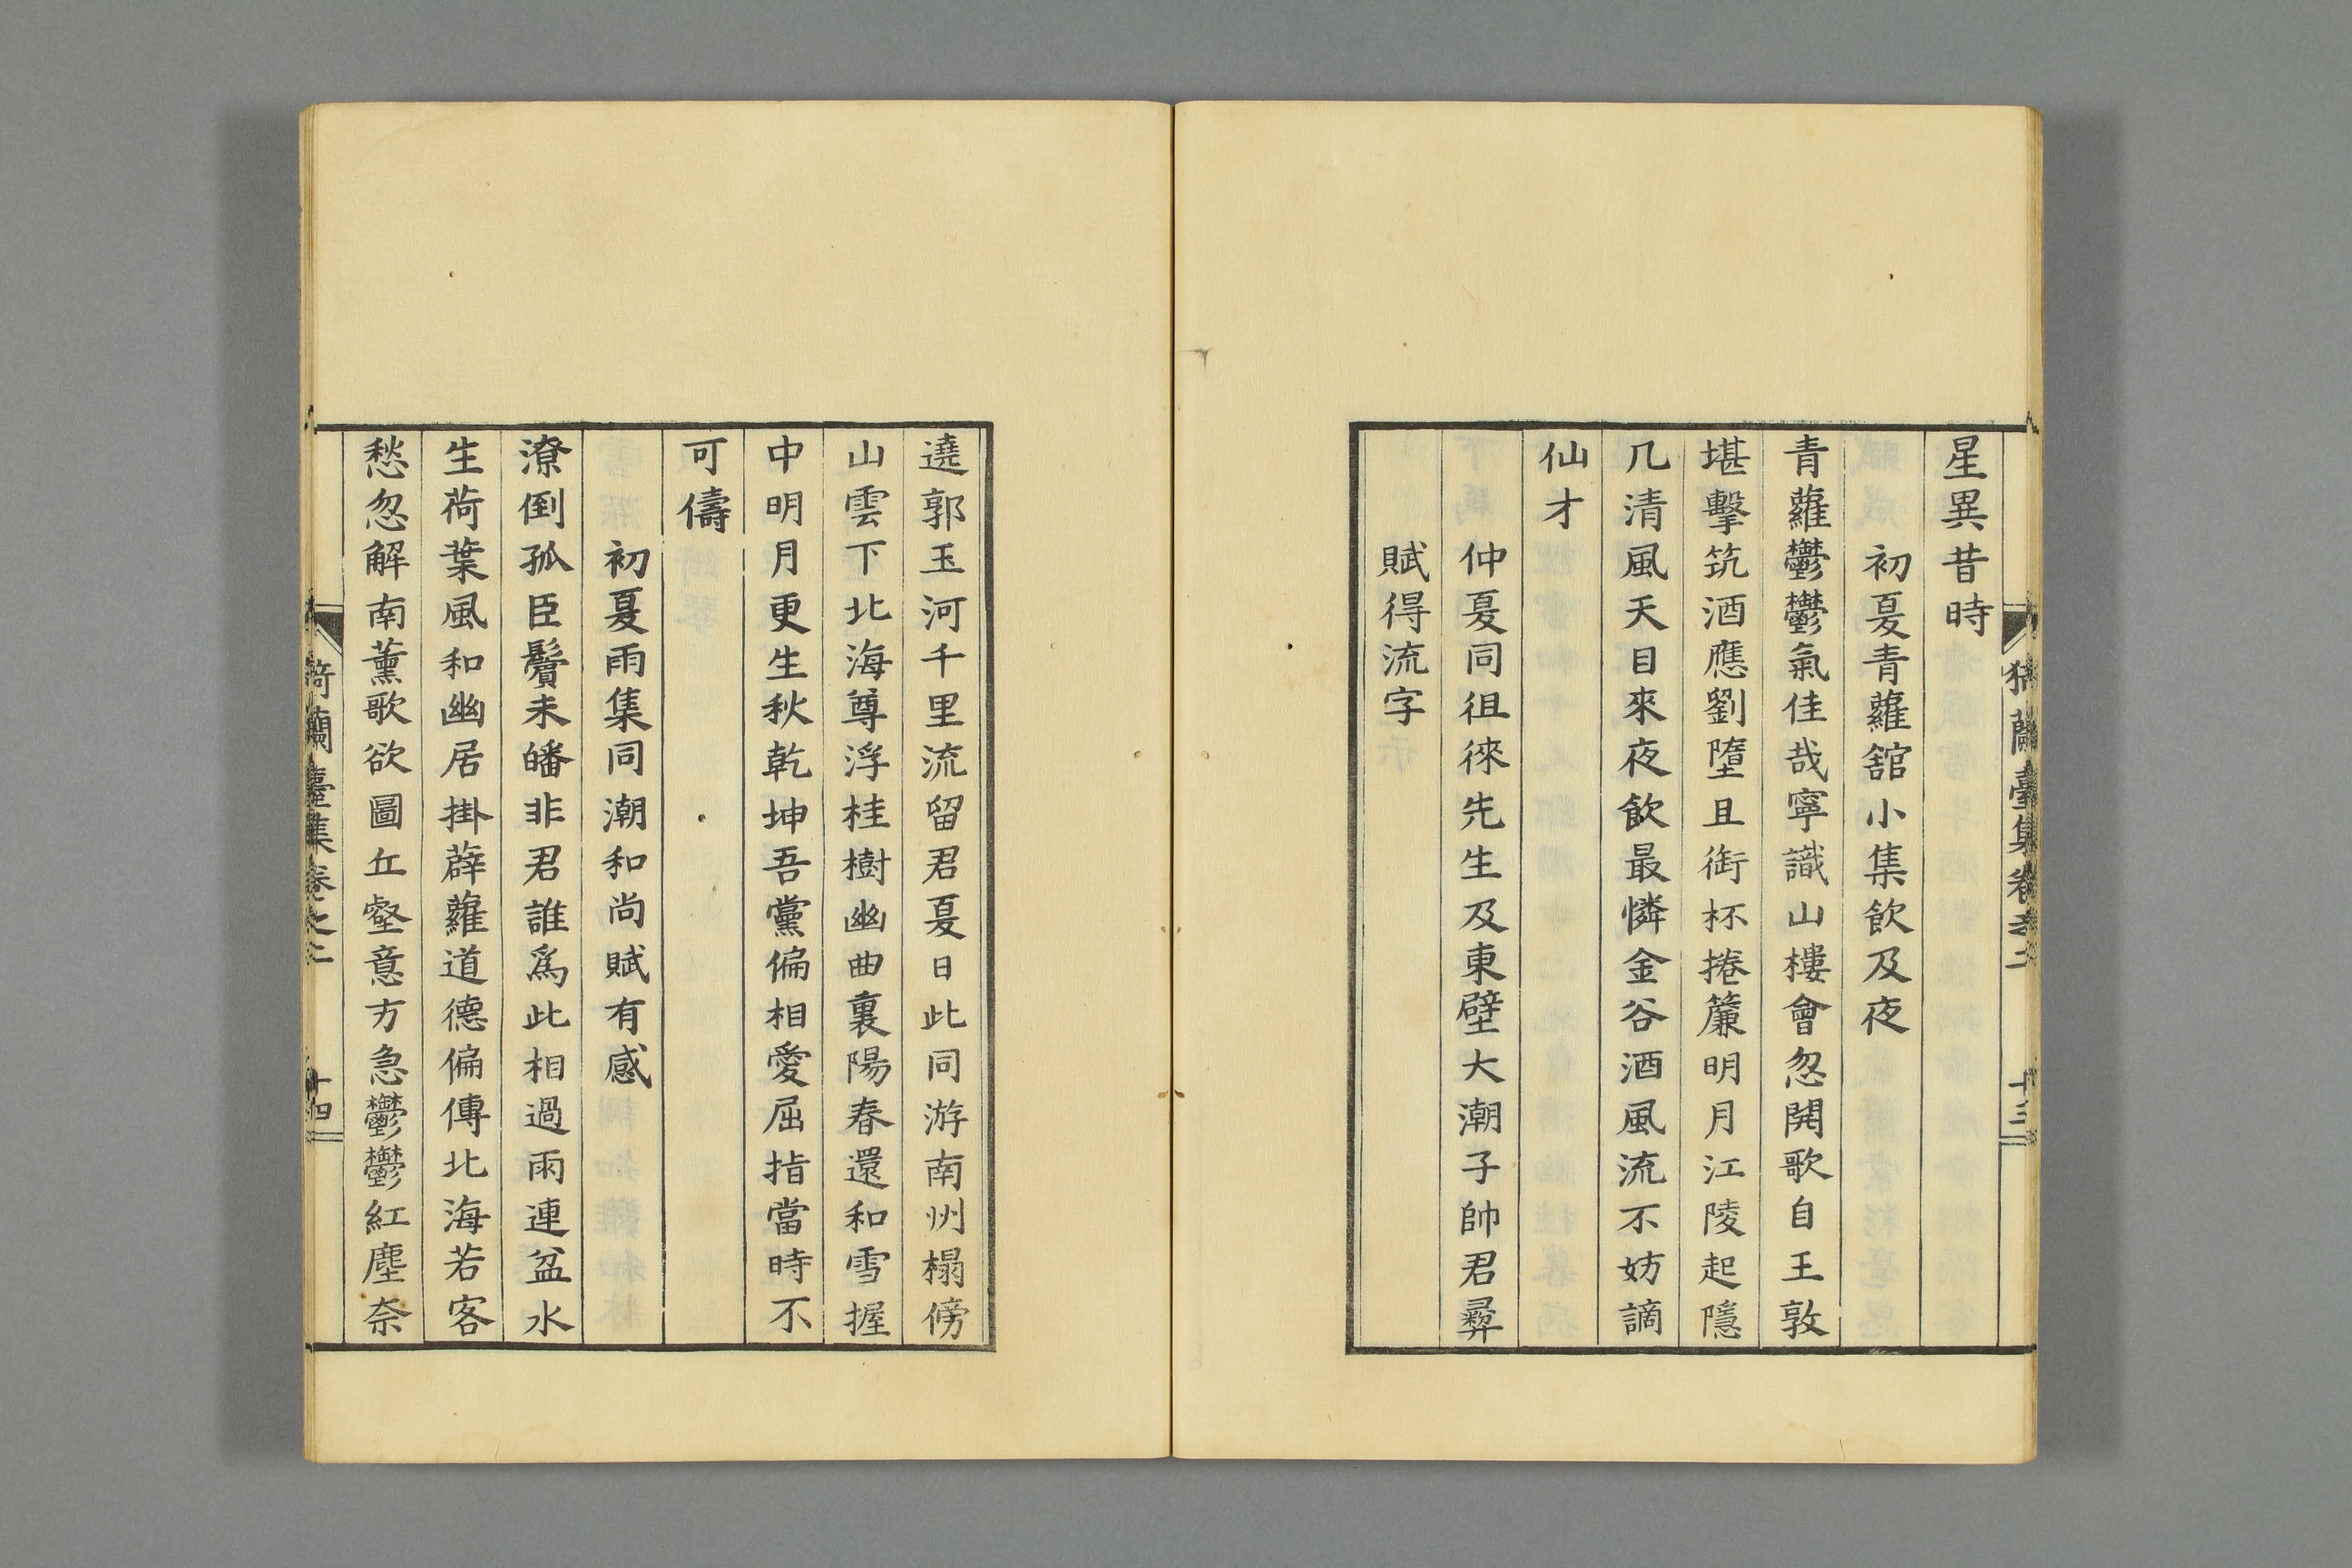 星異昔時
初夏青蘿舘小集飲及夜
青蘿鬱鬱氣佳哉寧識山樓會忽開歌自王敦
堪擊筑酒應劉墮且銜杯捲簾明月江陵起隱
几清風天目來夜飲最憐金谷酒風流不妨謫
仙才
仲夏同徂徠先生及東壁大潮子帥君彛
賦得流字
遶郭玉河千里流留君夏日此同游南州榻傍
山雲下北海尊浮桂樹幽曲裏陽春還和雪握
中明月更生秋乾坤吾黨偏相愛屈指當時不
可儔
初夏雨集同潮和尚賦有感
潦倒孤臣鬢未皤非君誰爲此相過雨連盆水
生荷葉風和幽居掛薜蘿道德偏傳北海若客
愁忽解南薰歌欲圖丘壑意方急鬱鬱紅塵奈
蘭臺集卷之二
十三
蘭臺集卷之二
十四